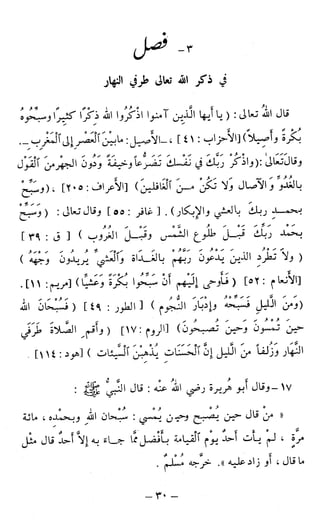 ٣ - فصل
في ذكر الله تعالى طرفي النهار
قال اللهُ تعالى : ( يا أيها الَّذين آمنوا اذْكُروا الله ذِكْرًا كثيرًا وسبِّحُوهُ
بُكْرَةً وأصيلاً) [الأحزاب : ٤١] ، ـ الأصيل : مابَيْنَ الْعَصْرِ إلى الْمَغْرِبِ ـ .
وقال تَعَالَى : (واذْكُرْ رَبَّكَ في نَفْسِكَ تَضَرُّعاً وخِيفَةً ودُونَ الجهْرِ مِنَ الْقَوْلِ
بالغُدُوِّ والآصالِ ولا تَكُنْ مِنَ الْغَافِلينَ) [الأعراف : ٢٠٥] ، (وسَبِّحْ
بحمدِ ربِّكَ بالعشي والإبكارِ) . [ غافر : ٥٥ ] وقال تعالى : ( وَسَبِّحْ
بحَمْدِ رَبِّكَ قَبْلَ طُلُوعِ الشَّمْسِ وقَبْلَ الغُرُوبِ ) [ ق : ٣٩ ]
( ولا تَطْرُدِ الَّذِينَ يَدْعُونَ رَبَّهُمْ بالْغَدَاةِ والْعَشِيِّ يُرِيدُونَ وَجْهَهُ )
[الأنعام : ٥٢] ( فَأوحى إليْهِم أنْ سَبِّحُوا بُكْرَةً وعَشِيًّا) [مريم : ١١] .
(ومِنَ اللَّيلِ فَسَبِّحْهُ وإدْبَارَ النُّجُومِ ) [ الطور : ٤٩] ( فَسُبْحَانَ اللهِ
حينَ تُمْسُونَ وحينَ تُصبحونَ) [الروم : ١٧] ( وأقِم الصَّلاةَ طَرَفي
النَّهارِ وَزُلَفاً مِنَ اللَّيلِ إنَّ الْحَسَنَاتِ يُذْهِبْنَ السَّيئاتِ ) [هود : ١١٤]
١٧ - وقال أبو هريرة رضي الله عنه : قال النَّبيُّ ﷺ :
« من قال حينَ يُصبحُ وحينَ يُمْسِي : سُبْحَانَ اللهِ وبحمدهِ ، مائةَ
مرَّةٍ ، لمْ يأتِ أحدٌ يومَ الْقيامةِ بأفضلَ ممَّا جاء به إلاَّ أحدٌ قال مثْلَ
ما قال ، أو زادَ عليه » . خرَّجه مُسْلمٌ .
- ٣٠ -